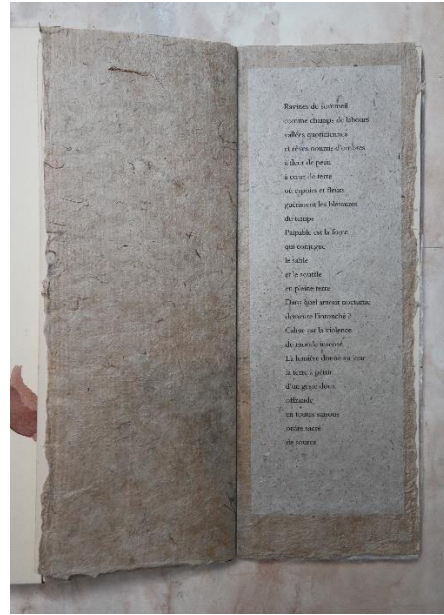 Ravines de sommeil
comme champs de labours
vallées quotidiennes
et rêves nourris d'ombres
à fleur de peau
à cœur de terre
où espoirs et fleurs
guérissent les blessures
du temps
Palpable est la force
qui conjugue
le sable
et le souffle
en pleine terre
Dans quel amour nocturne
demeure l'intouché ?
Calme est la violence
du monde
La lumière donne au jour
la terre à pétrir
d'un geste doux
offrande
en toutes saisons
ordre sacré
de source